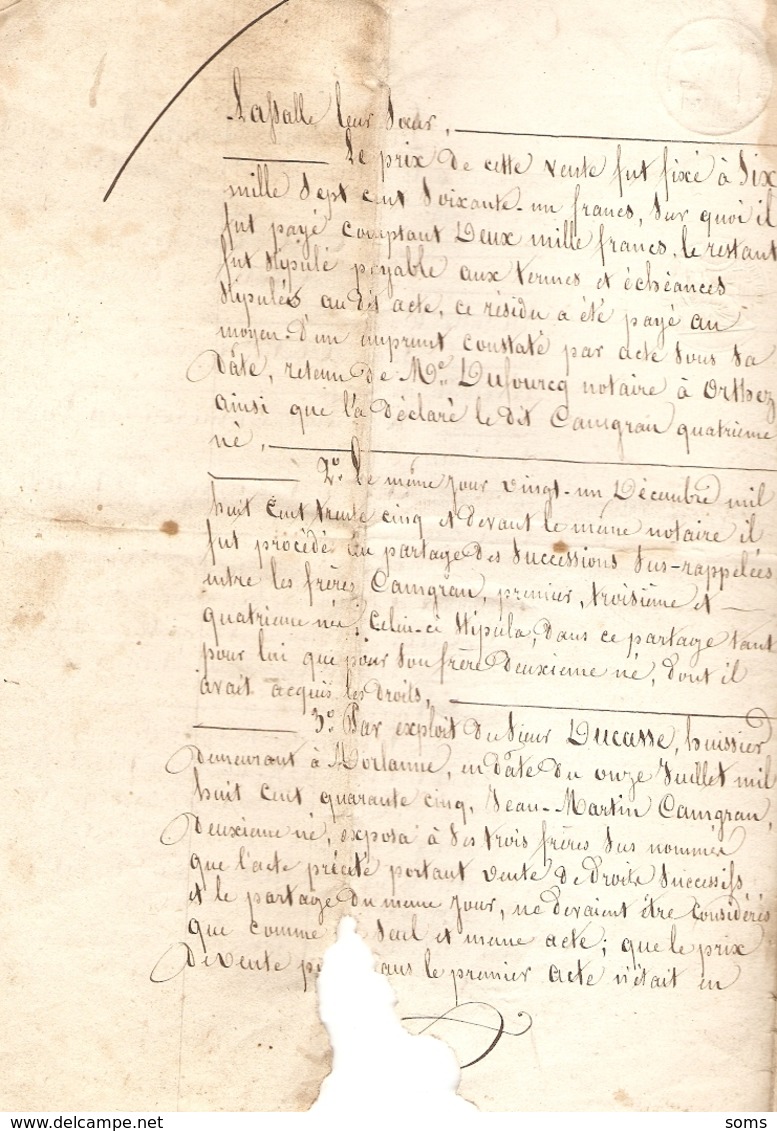 Lassalle leur Sœur,
Le prix de cette vente fut fixé à Six
mille Sept cent Soixante-un francs, Sur quoi il
fut payé comptant Deux mille francs, le restant
fut stipulé payable aux termes et échéances
stipulés au dit acte, ce résidu a été payé au
moyen d'un emprunt constaté par acte Sous Sa
Date, retenu de Me. Dufourcq notaire à Orthez
ainsi que l'a déclaré le dit Camgran quatrième
né,
2o. Le même jour vingt-un Décembre mil
huit Cent trente cinq et devant le même notaire il
fut procédé au partage des Successions Sus-rappelées
entre les frères Camgran, premier, troisième et
quatrieme née, Celui-ci Stipula, dans ce partage tant
pour lui que pour Son frère deuxieme né, dont il
avait acquis les droits,
3o. Par exploit du Sieur Ducasse, huissier
demeurant à Morlanne, en date du onze Juillet mil
huit Cent quarante cinq, Jean-Martin Camgran,
Deuxieme né, exposa à Ses trois frères Sus nommés
que l'acte précité portant vente de Droits Successifs
et le partage du meme Jour, ne devaient être Considérés
que comme Seul et meme acte; que le prix
de vente dans le premier acte n'était en
soms